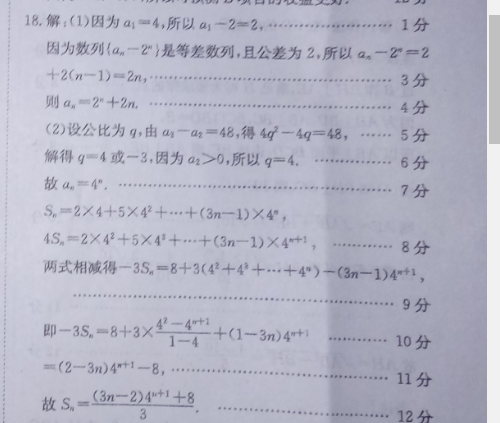 18.解:(1)因为a₁=4,所以a₁-2=2, …… 1分
因为数列{aₙ-2ⁿ}是等差数列,且公差为2,所以aₙ-2ⁿ=2
+2(n-1)=2n, …… 3分
则aₙ=2ⁿ+2n. …… 4分
(2)设公比为q,由a₃-a₂=48,得4q²-4q=48, …… 5分
解得q=4或-3,因为a₂>0,所以q=4. …… 6分
故aₙ=4ⁿ. …… 7分
Sₙ=2×4+5×4²+…+(3n-1)×4ⁿ,
4Sₙ=2×4²+5×4³+…+(3n-1)×4ⁿ⁺¹, …… 8分
两式相减得-3Sₙ=8+3(4²+4³+…+4ⁿ)-(3n-1)4ⁿ⁺¹,
…… 9分
即-3Sₙ=8+3×(4²-4ⁿ⁺¹)/(1-4)+(1-3n)4ⁿ⁺¹ …… 10分
=(2-3n)4ⁿ⁺¹-8, …… 11分
故Sₙ=((3n-2)4ⁿ⁺¹+8)/3. …… 12分